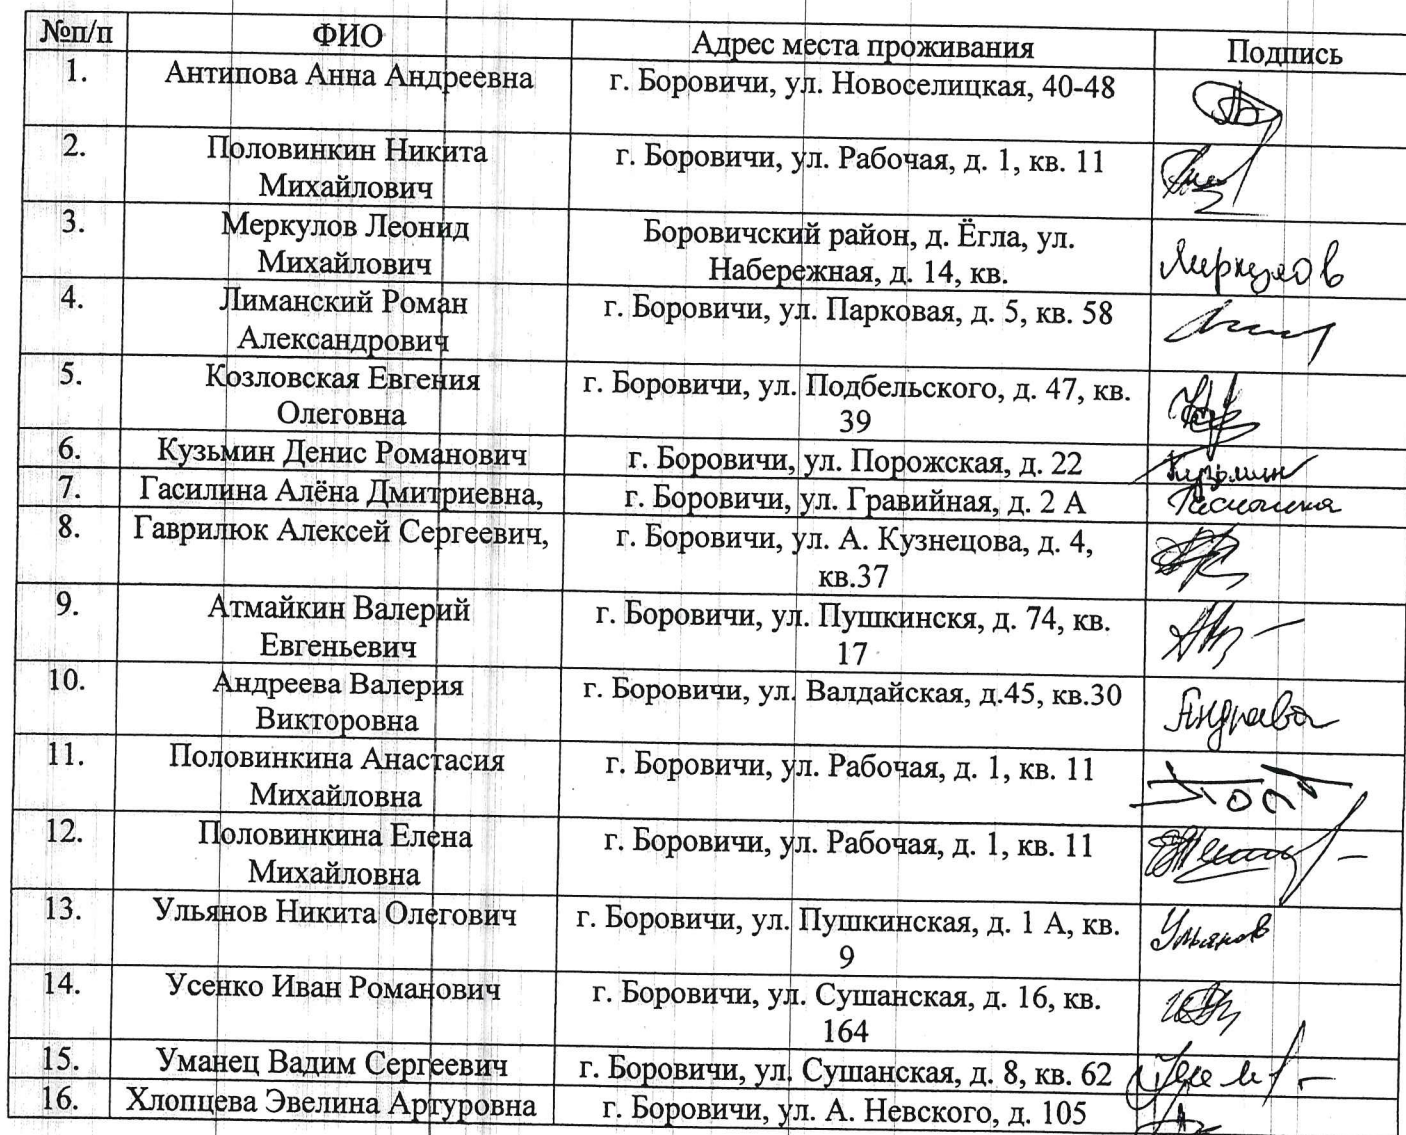 №п/п ФИО Адрес места проживания Подпись
1. Антипова Анна Андреевна г. Боровичи, ул. Новоселицкая, 40-48
2. Половинкин Никита г. Боровичи, ул. Рабочая, д. 1, кв. 11
Михайлович
3. Меркулов Леонид Боровичский район, д. Ёгла, ул.
Михайлович Набережная, д. 14, кв. Меркулов
4. Лиманский Роман г. Боровичи, ул. Парковая, д. 5, кв. 58
Александрович
5. Козловская Евгения г. Боровичи, ул. Подбельского, д. 47, кв.
Олеговна 39
6. Кузьмин Денис Романович г. Боровичи, ул. Порожская, д. 22 Кузьмин
7. Гасилина Алёна Дмитриевна, г. Боровичи, ул. Гравийная, д. 2 А
8. Гаврилюк Алексей Сергеевич, г. Боровичи, ул. А. Кузнецова, д. 4,
кв.37
9. Атмайкин Валерий г. Боровичи, ул. Пушкинскя, д. 74, кв.
Евгеньевич 17
10. Андреева Валерия г. Боровичи, ул. Валдайская, д.45, кв.30
Викторовна Андреева
11. Половинкина Анастасия г. Боровичи, ул. Рабочая, д. 1, кв. 11
Михайловна
12. Половинкина Елена г. Боровичи, ул. Рабочая, д. 1, кв. 11
Михайловна
13. Ульянов Никита Олегович г. Боровичи, ул. Пушкинская, д. 1 А, кв. Ульянов
9
14. Усенко Иван Романович г. Боровичи, ул. Сушанская, д. 16, кв.
164
15. Уманец Вадим Сергеевич г. Боровичи, ул. Сушанская, д. 8, кв. 62
16. Хлопцева Эвелина Артуровна г. Боровичи, ул. А. Невского, д. 105